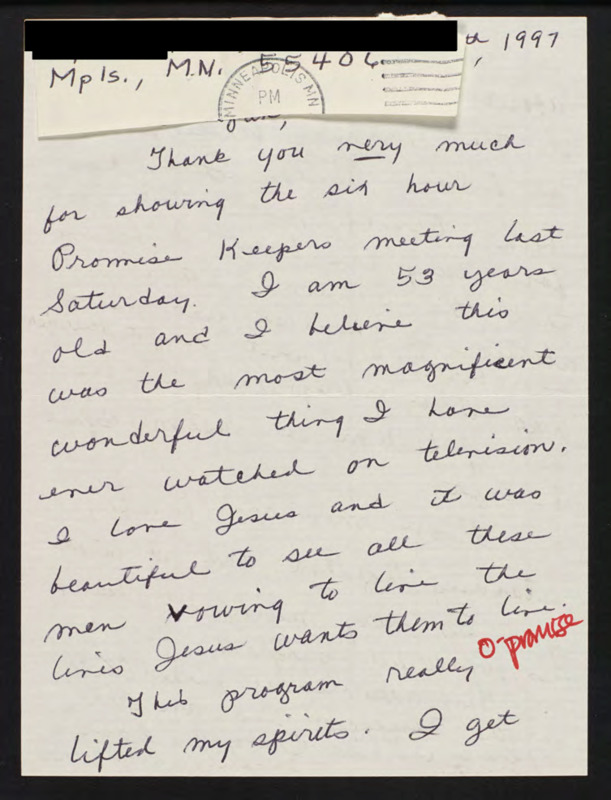 th, 1997
Mpls., M.N. 55406
MINNEAPOLIS MN
PM
Thank you very much
for showing the six hour
Promise Keepers meeting last
Saturday. I am 53 years
old and I believe this
was the most magnificent
wonderful thing I have
ever watched on television.
I love Jesus and it was
beautiful to see all these
men vowing to live the
lives Jesus wants them to live.
O-promise
This program really
lifted my spirits. I get